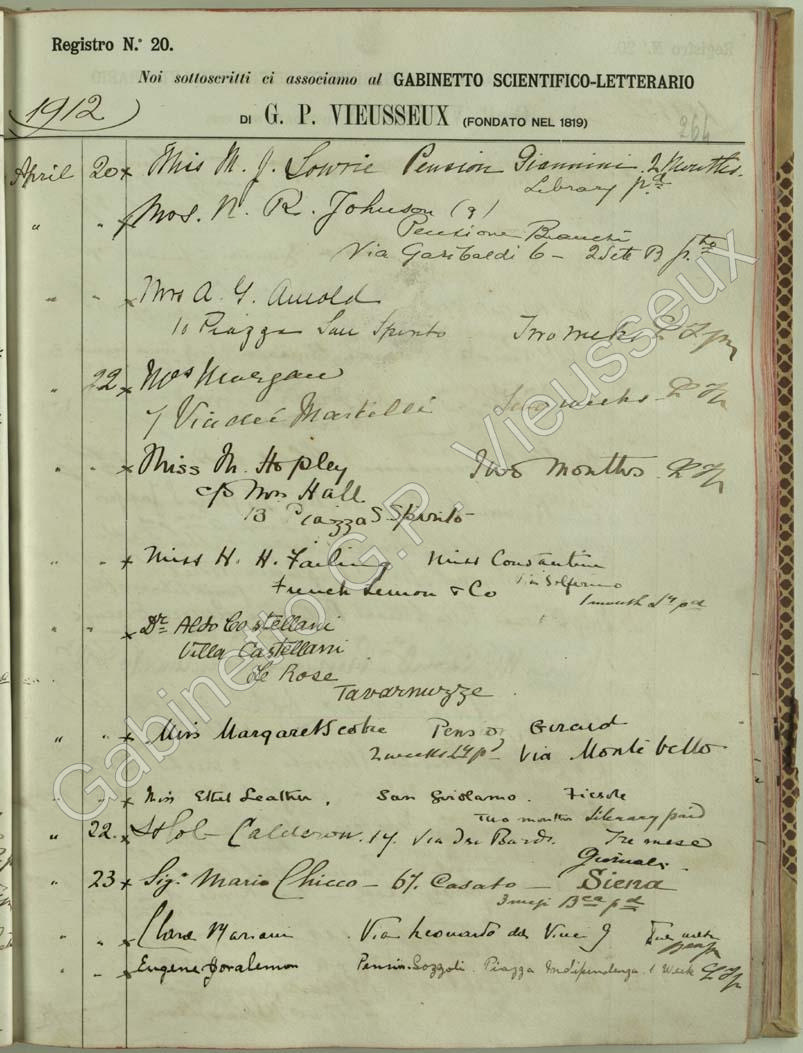 Registro N.° 20.
Noi sottoscritti ci associamo al GABINETTO SCIENTIFICO-LETTERARIO
1912
DI G. P. VIEUSSEUX (FONDATO NEL 1819)
264
April 20 x Miss M. J. Lowrie Pension Giannini. 2 Months.
Library pd
" " x Mrs. N. R. Johnson (9)
Pensione Bianchi
Via Garibaldi 6 -
" " x Mrs A. G. Arnold
10 Piazza San Spirito Two weeks
" 22 x Mrs Morgan
7 Via dei Martelli weeks
" " x Miss M. Hopley Two Months
c/o Mrs Hall
13 Piazza S. Spirito
" " x Miss H. H. Failing Miss Constantine
French Lemon & Co Via Solferino
1 month pd
" " x Dr Aldo Castellani
Villa Castellani
Le Rose
Tavarnuzze.
" " x Miss Margaret Scobie Pens Girard
2 weeks Via Montebello
" " x Miss Ethel Leather, San Girolamo. Fiesole
Two months Library paid
" 22. x Calderon. 14. Via Dei Bardi. Tre mese
Giornali.
" 23 x Sigr Mario Chicco - 67. Casato - Siena
3 mesi pd
" " x Clara Mariani Via Leonardo da Vinci
" " x Eugene Doralemon Pension Sozzoli. Piazza Indipendenza. 1 Week
Gabinetto G.P. Vieusseux